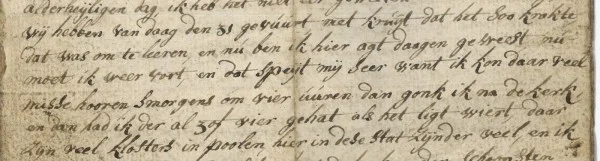 alderheijligen dag ik heb het niet
wij hebben van daag den 31 gevuurt met kruijt dat het soo krakte
dat was om te leeren, en nu ben ik hier agt daagen geweest nu
moet ik weer vort en dat speijt mij seer want ik kon daar veel
misse hooren smorgens om vier uuren dan gonk ik na de kerk
en dan had ik der al 3 of vier gehat als het ligt wiert daar
zijn veel klosters in poolen, hier in dese stat zijnder veel, en ik